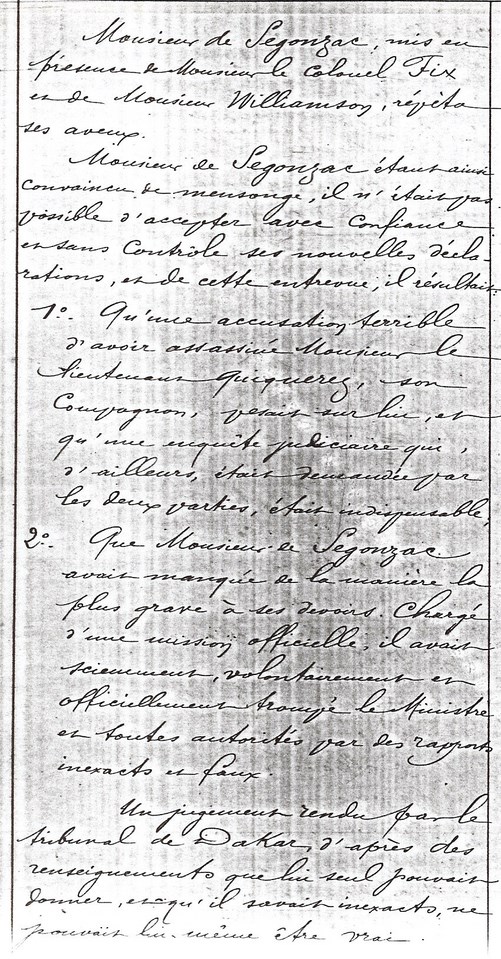 Monsieur de Segonzac, mis en
présence de Monsieur le Colonel Fix
et de Monsieur Williamson, répéta
ses aveux.
Monsieur de Segonzac étant ainsi
convaincu de mensonge, il n'était pas
possible d'accepter avec confiance
et sans contrôle ses nouvelles décla-
rations, et de cette entrevue, il résultait:
1º. Qu'une accusation terrible
d'avoir assassiné Monsieur le
lieutenant Quiquerez, son
Compagnon, pesait sur lui, et
qu'une enquête judiciaire qui,
d'ailleurs, était demandée par
les deux parties, était indispensable;
2º. Que Monsieur de Segonzac
avait manquée de la manière la
plus grave à ses devoirs. Chargé
d'une mission officielle, il avait
sciemment, volontairement et
officiellement trompé le Ministre
et toutes autorités par des rapports
inexacts et faux.
Un jugement rendu par le
tribunal de Dakar, d'après des
renseignements que lui seul pouvait
donner, et qu'il savait inexacts, ne
pouvait lui-même être vrai.